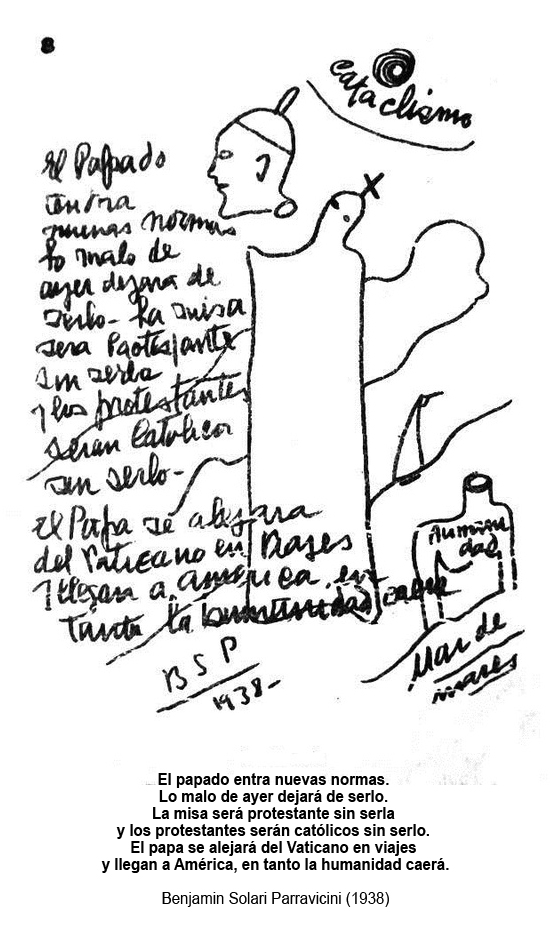 8
cataclismo
El Papado
tendra
nuevas normas
lo malo de
ayer dejara de
serlo - La misa
sera Protestante
sin serla
y los protestantes
seran Catolicos
sin serlo -
El Papa se alejara
del Vaticano en Viajes
y llegan a America, en
tanto la humanidad caera
BSP
1938-
Mar de
mares
El papado entra nuevas normas.
Lo malo de ayer dejará de serlo.
La misa será protestante sin serla
y los protestantes serán católicos sin serlo.
El papa se alejará del Vaticano en viajes
y llegan a América, en tanto la humanidad caerá.
Benjamin Solari Parravicini (1938)